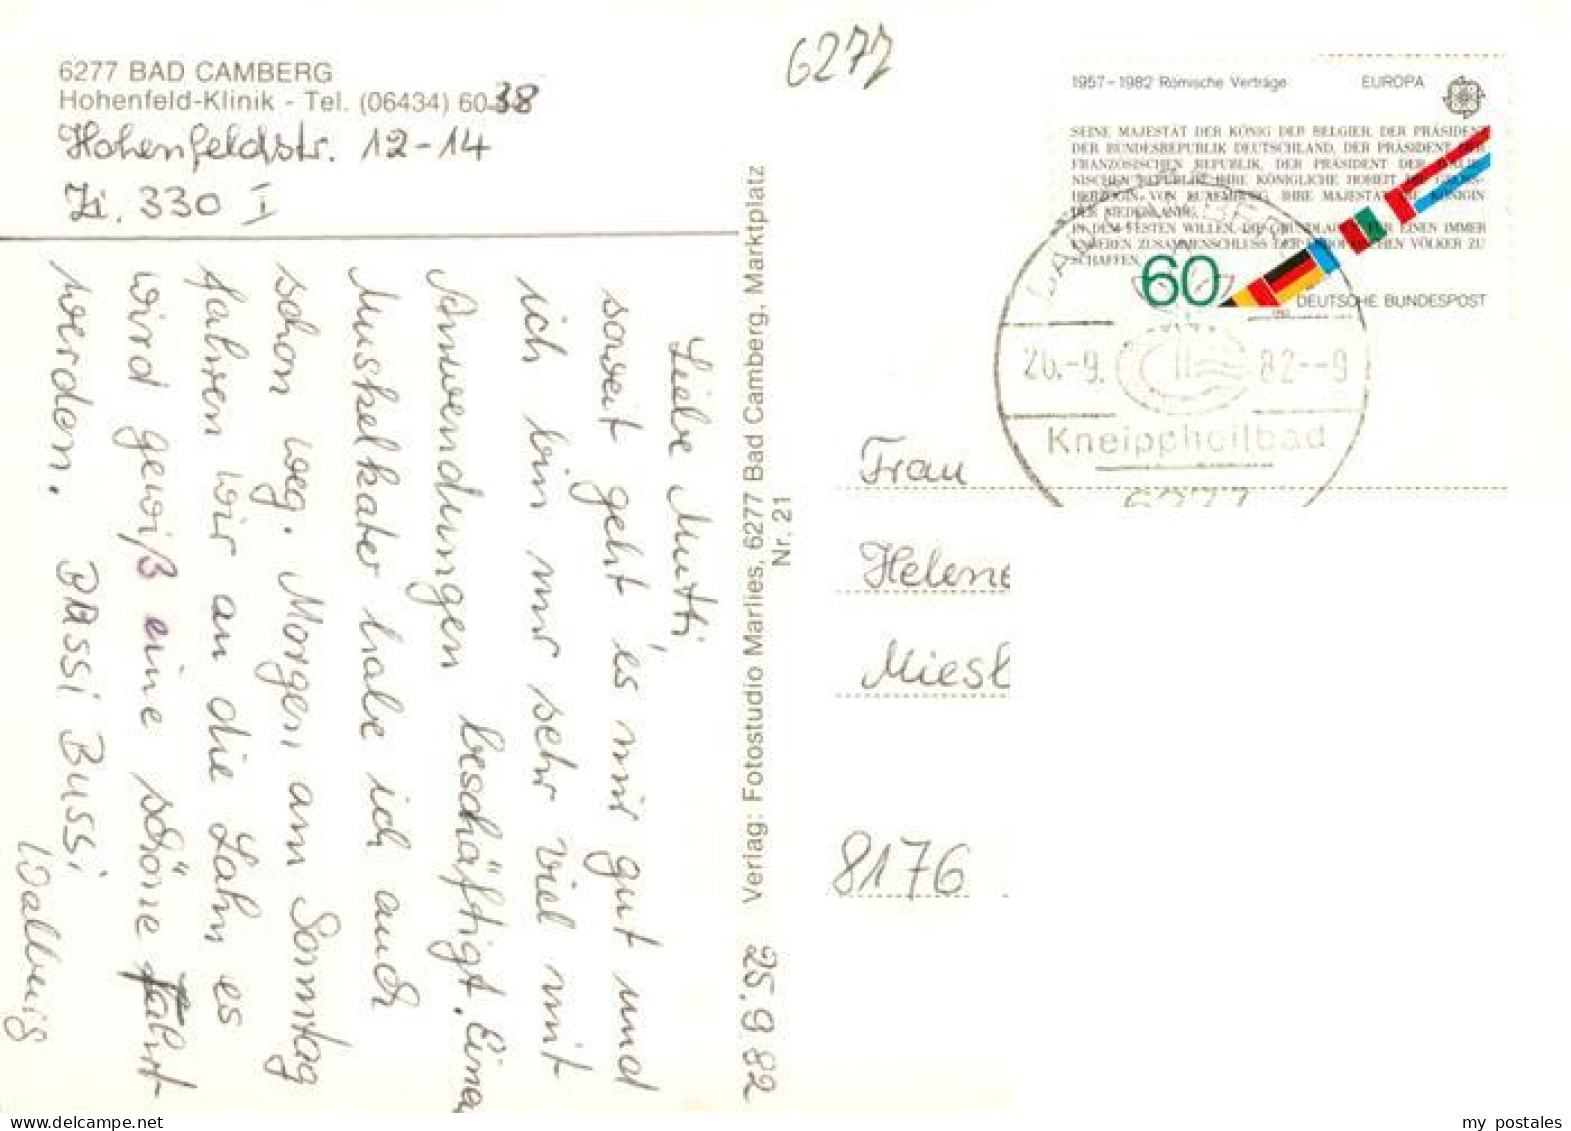 6277 BAD CAMBERG
Hohenfeld-Klinik - Tel. (06434) 6038
Hohenfeldstr. 12-14
Zi. 330 I
6277
1957-1982 Römische Verträge EUROPA
SEINE MAJESTÄT DER KÖNIG DER BELGIER, DER PRÄSIDENT
DER BUNDESREPUBLIK DEUTSCHLAND, DER PRÄSIDENT DER
FRANZÖSISCHEN REPUBLIK, DER PRÄSIDENT DER ITALIE-
NISCHEN REPUBLIK, IHRE KÖNIGLICHE HOHEIT DIE GROSS-
HERZOGIN VON LUXEMBURG, IHRE MAJESTÄT DIE KÖNIGIN
DER NIEDERLANDE,
IN DEM FESTEN WILLEN, DIE GRUNDLAGEN FÜR EINEN IMMER
ENGEREN ZUSAMMENSCHLUSS DER EUROPÄISCHEN VÖLKER ZU
SCHAFFEN,
60
DEUTSCHE BUNDESPOST
26.-9. 82--9
Kneippheilbad
6277
Liebe Mutti,
soweit geht es mir gut und
ich bin nur sehr viel mit
Anwendungen beschäftigt. Einen
Muskelkater habe ich auch
schon weg. Morgen am Sonntag
fahren wir an die Lahn es
wird gewiß eine schöne Fahrt
werden. Bassi Bussi
Walburg
Verlag: Fotostudio Marlies, 6277 Bad Camberg, Marktplatz
Nr. 21
25.9.82
Frau
Helene
Miesb
8176
my postales